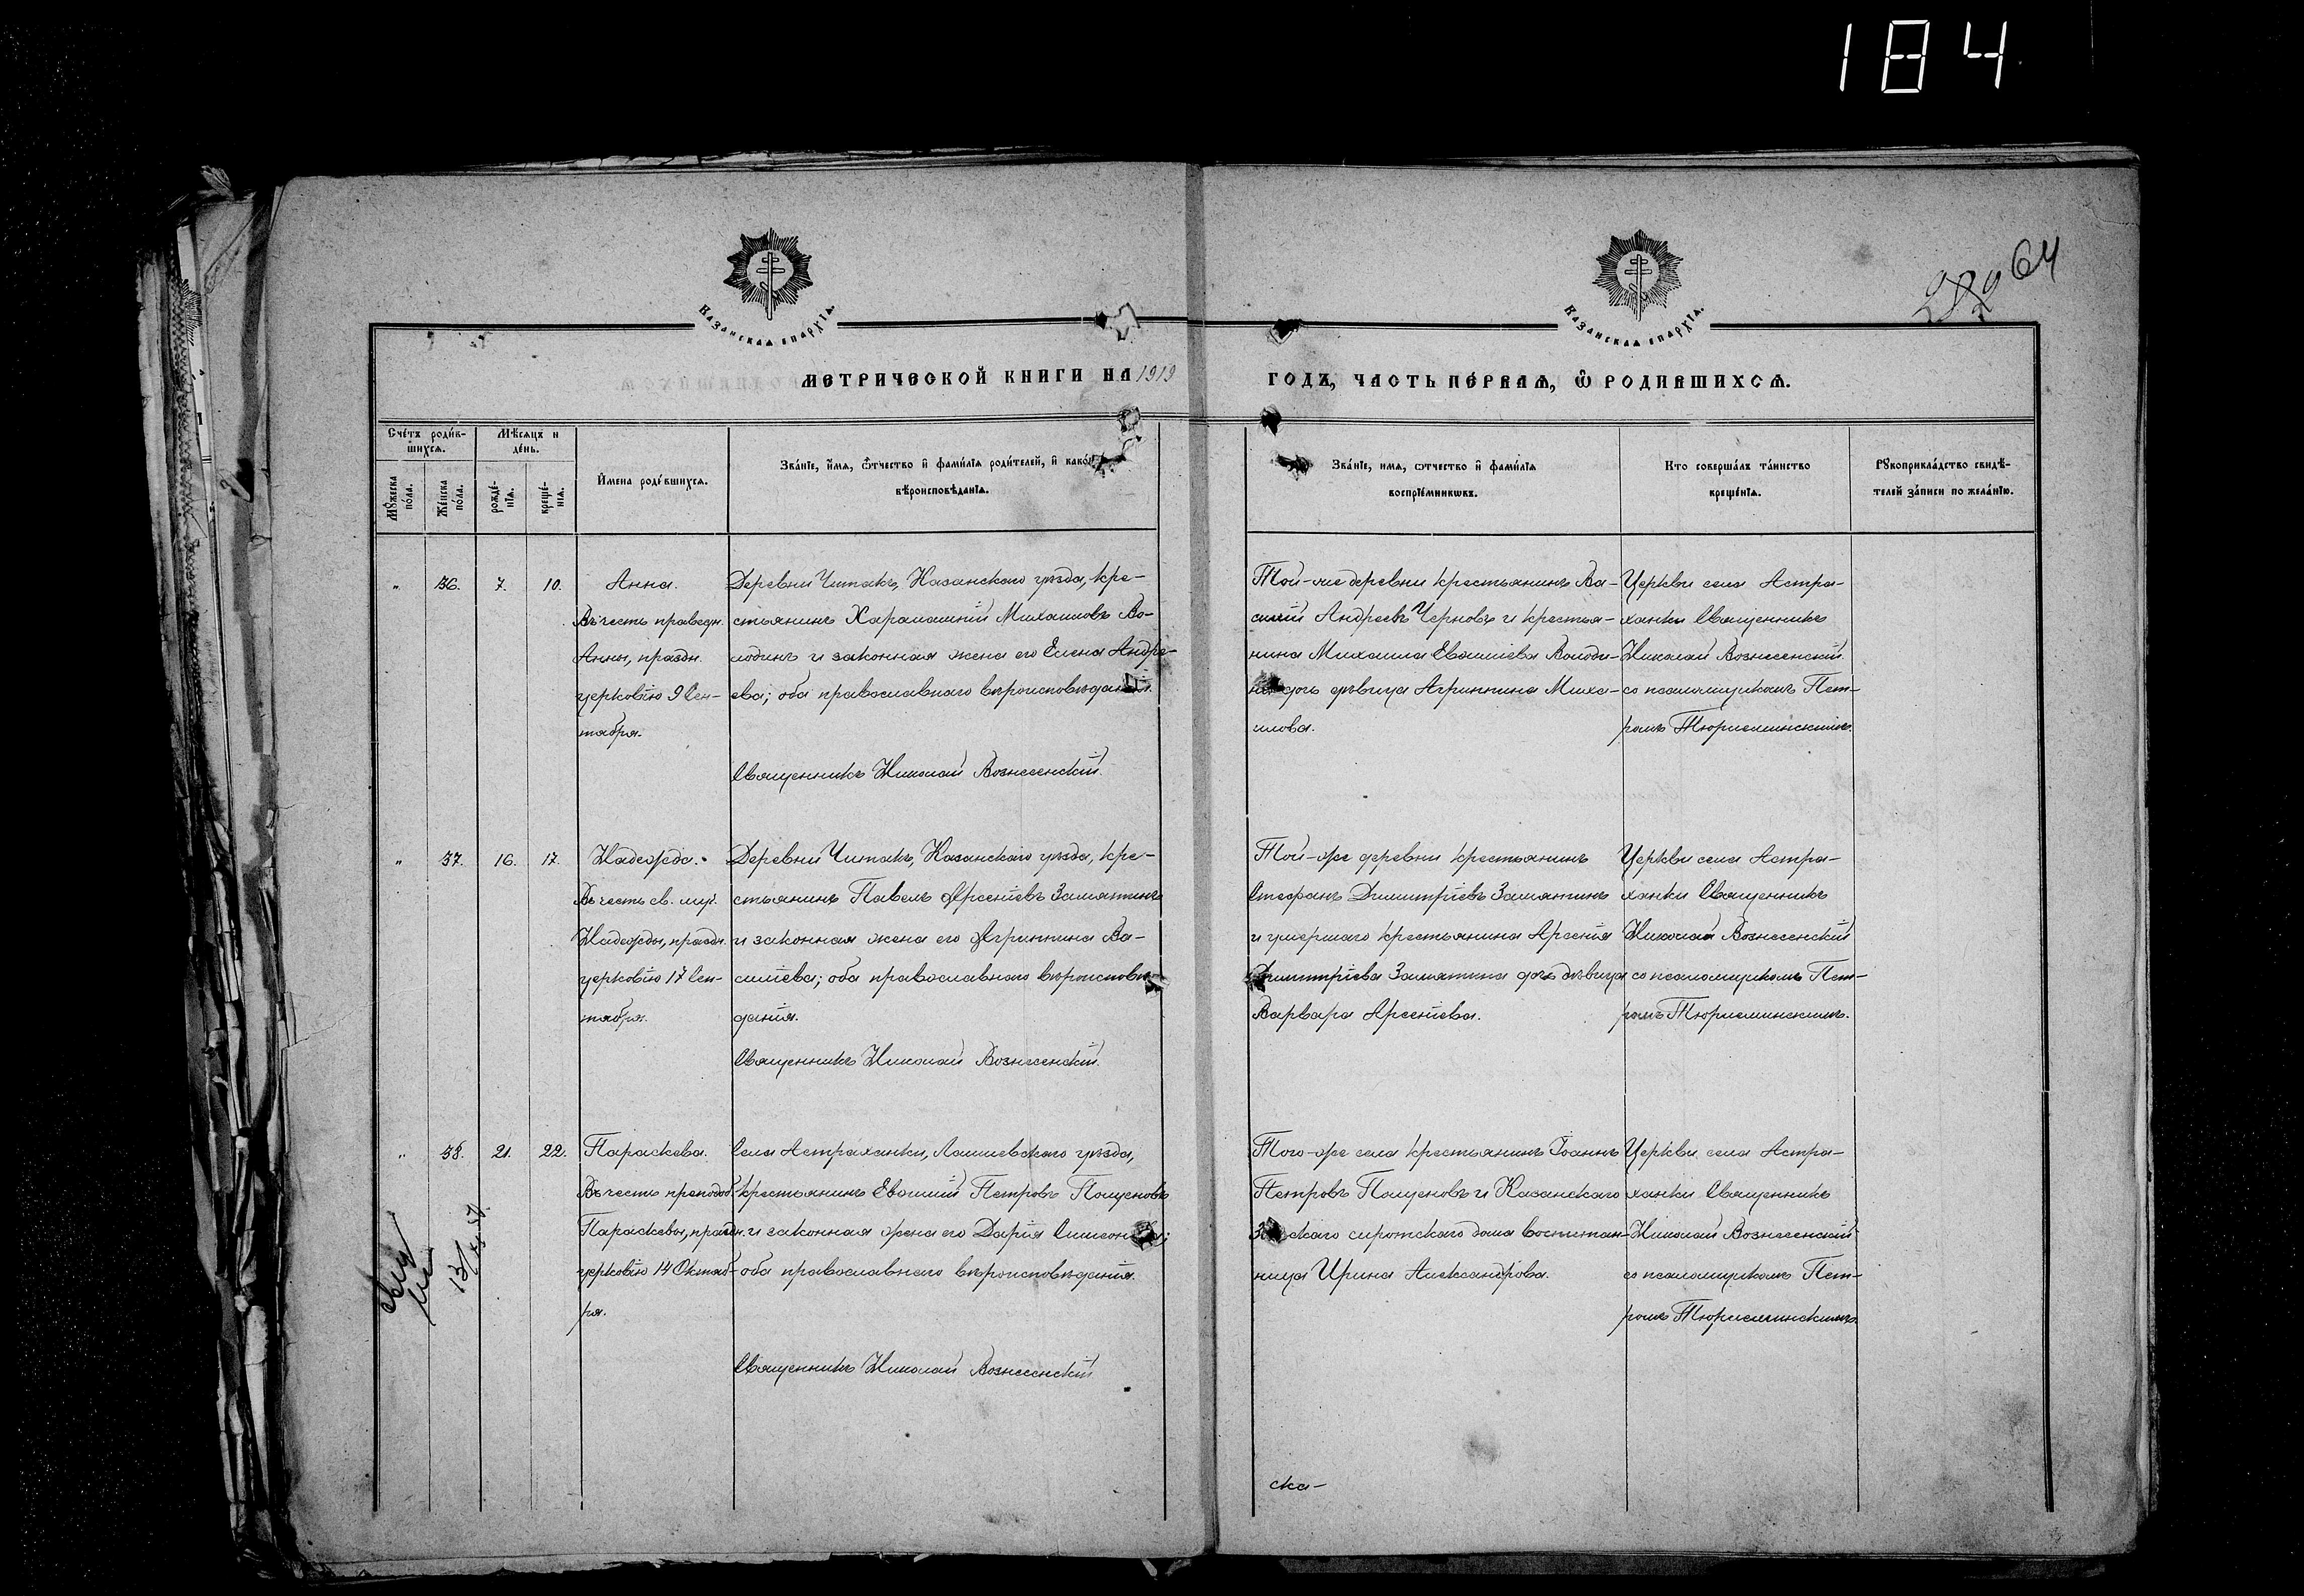 184
229 64
Казанская епархїѧ.
Казанская епархїѧ.
МЕТРИЧЕСКОЙ КНИГИ НА 1919 ГОДЪ, ЧАСТЬ ПЕ́РВАѦ, Ѿ РОДИВШИХСѦ.
Сче́тъ роди́в-
шихсѧ.
Мѣ́сѧцъ и
де́нь.
Мꙋ́жеска
по́ла.
Же́нска
по́ла.
рожде́-
нїѧ.
креще́-
нїѧ.
И҆мена роди́вшихсѧ.
Зва́нїе, и҆́мѧ, ѻ҆́тчество и҆ фами́лїѧ роди́телей, и҆ како́й
вѣроисповѣ́данїѧ.
Зва́нїе, имѧ, ѻтчество и҆ фами́лїѧ
воспрїе́мникѡвъ.
Кто соверша́лъ та́инство
креще́нїѧ.
Рꙋкоприкла́дство свидѣ́-
телей за́писи по жела́нїю.
„ 36. 7. 10.
Анна.
Въ честь праведн.
Анны, праздн.
церковію 9 Сен-
тября.
Деревни Читакъ, Казанскаго уѣзда, кре-
стьянинъ Харалампій Михаиловъ Во-
лодинъ и законная жена его Елена Андре-
ева; оба православнаго вѣроисповѣданія.
Священникъ Николай Вознесенскій.
Той-же деревни крестьянинъ Ва-
силій Андреевъ Черновъ и крестья-
нина Михаила Евѳиміева Володи-
на дочь дѣвица Агриппина Миха-
илова.
Церкви села Астра-
ханки Священникъ
Николай Вознесенскій
со псаломщикомъ Пет-
ромъ Тюрлеминскимъ.
„ 37. 16. 17.
Надежда.
Въ честь св. муч.
Надежды, праздн.
церковію 17 Сен-
тября.
Деревни Читакъ, Казанскаго уѣзда, кре-
стьянинъ Павелъ Арсеніевъ Замятинъ
и законная жена его Агриппина Ва-
силіева; оба православнаго вѣроисповѣ-
данія.
Священникъ Николай Вознесенскій.
Той-же деревни крестьянинъ
Стефанъ Димитріевъ Замятинъ
и умершаго крестьянина Арсенія
Димитріева Замятина дочь дѣвица
Варвара Арсеніева.
Церкви села Астра-
ханки Священникъ
Николай Вознесенскій
со псаломщикомъ Пет-
ромъ Тюрлеминскимъ.
„ 38. 21. 22.
Параскева.
Въ честь преподоб.
Параскевы, праздн.
церковію 14 Октяб-
ря.
Села Астраханки, Лаишевскаго уѣзда,
крестьянинъ Евѳимій Петровъ Полуеновъ
и законная жена его Дарія Симеонова;
оба православнаго вѣроисповѣданія.
Священникъ Николай Вознесенскій
Того-же села крестьянинъ Іоаннъ
Петровъ Полуеновъ и Казанскаго
скаго сиротскаго дома воспитан-
ница Ирина Александрова.
Церкви села Астра-
ханки Священникъ
Николай Вознесенскій
со псаломщикомъ Пет-
ромъ Тюрлеминскимъ.
ска-